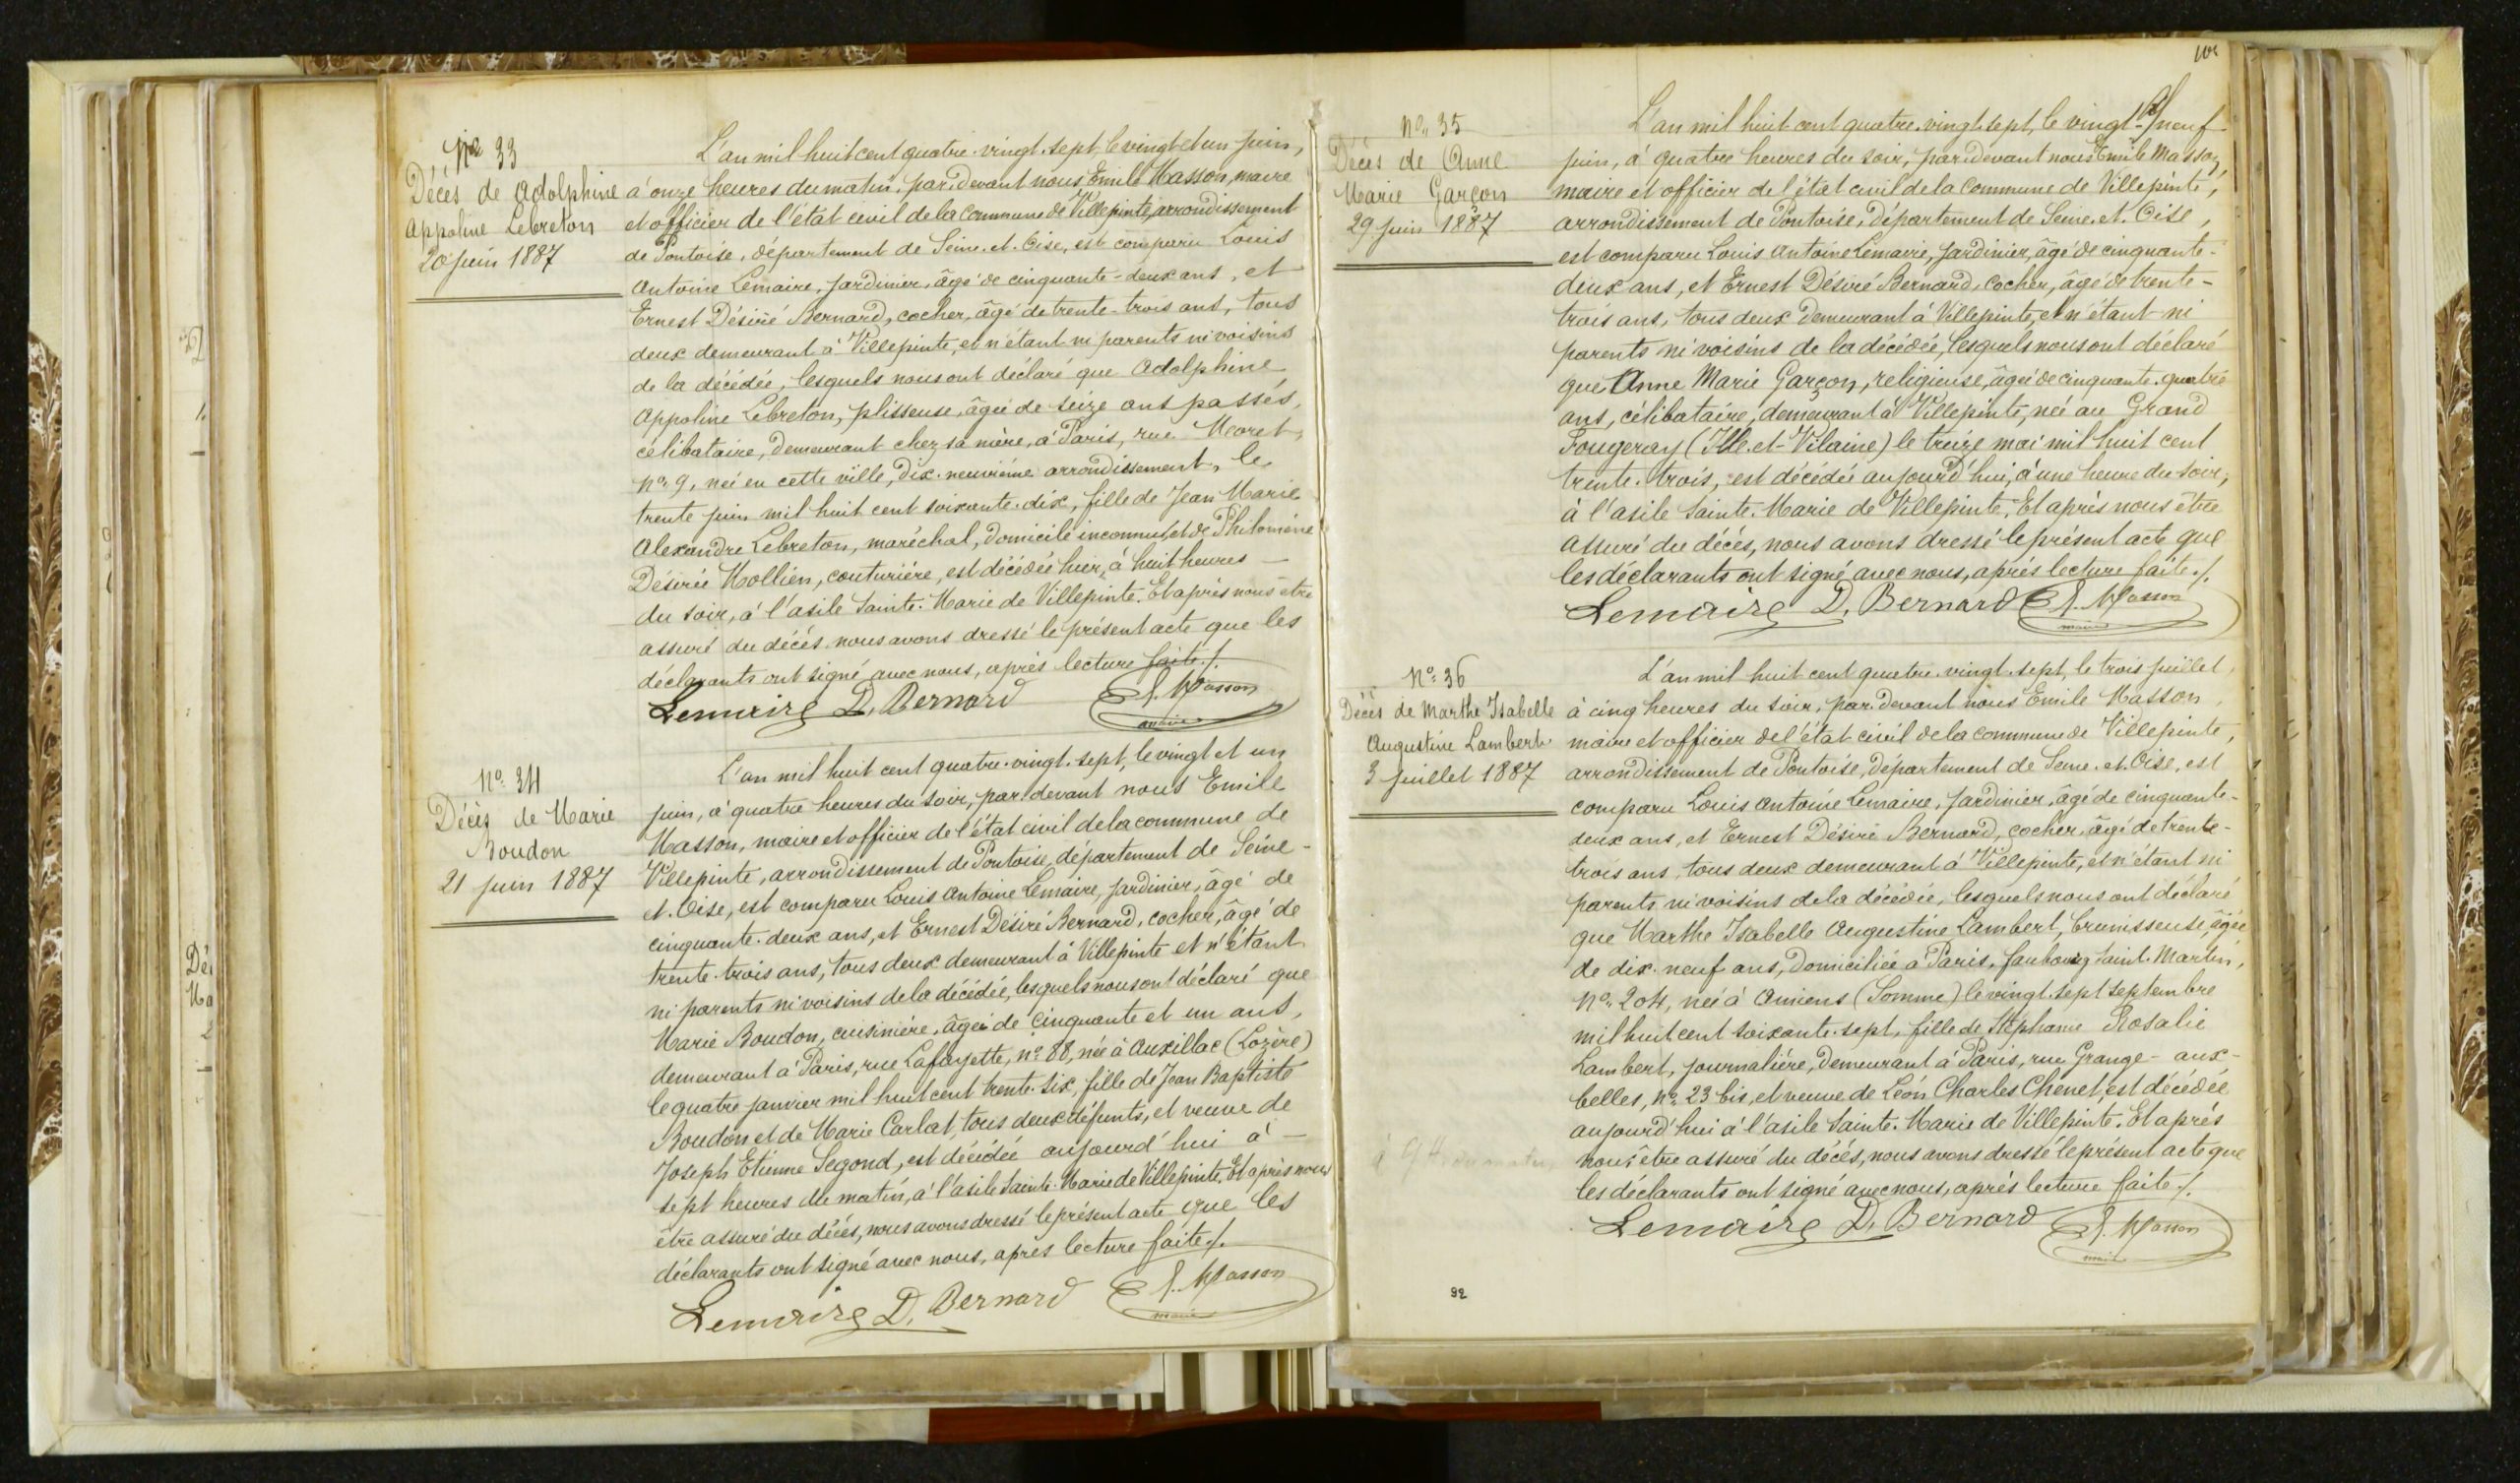 No 33
Décès de Adolphine
Appoline Lebreton
20 juin 1887
L'an mil huit cent quatre-vingt-sept, le vingt et un juin,
à onze heures du matin, par devant nous Emile Masson, maire
et officier de l'état civil de la commune de Villepinte, arrondissement
de Pontoise, département de Seine-et-Oise, est comparu Louis
Antoine Lemaire, jardinier, âgé de cinquante-deux ans, et
Ernest Désiré Bernard, cocher, âgé de trente-trois ans, tous
deux demeurant à Villepinte, et n'étant ni parents ni voisins
de la décédée, lesquels nous ont déclaré que Adolphine
Appoline Lebreton, plisseuse, âgée de seize ans passés,
célibataire, demeurant chez sa mère, à Paris, rue
No 9, née en cette ville, dix-neuvième arrondissement, le
trente juin mil huit cent soixante-dix, fille de Jean Marie
Alexandre Lebreton, maréchal, domicile inconnu, et de Philomène
Désirée Hollien, couturière, est décédée hier, à huit heures
du soir, à l'asile Sainte-Marie de Villepinte. Et après nous être
assuré du décès, nous avons dressé le présent acte que les
déclarants ont signé avec nous, après lecture faite ./.
Lemaire D. Bernard E. Masson
maire
No 34
Décès de Marie
Boudon
21 juin 1887
L'an mil huit cent quatre-vingt-sept, le vingt et un
juin, à quatre heures du soir, par devant nous Emile
Masson, maire et officier de l'état civil de la commune de
Villepinte, arrondissement de Pontoise, département de Seine-
et-Oise, est comparu Louis Antoine Lemaire, jardinier, âgé de
cinquante-deux ans, et Ernest Désiré Bernard, cocher, âgé de
trente-trois ans, tous deux demeurant à Villepinte et n'étant
ni parents ni voisins de la décédée, lesquels nous ont déclaré que
Marie Boudon, cuisinière, âgée de cinquante et un ans,
demeurant à Paris, rue Lafayette, no 88, née à Auxillac (Lozère)
le quatre janvier mil huit cent trente-six, fille de Jean Baptiste
Boudon et de Marie Carlat, tous deux défunts, et veuve de
Joseph Etienne Segond, est décédée aujourd'hui à
sept heures du matin, à l'asile Sainte-Marie de Villepinte. Et après nous
être assuré du décès, nous avons dressé le présent acte que les
déclarants ont signé avec nous, après lecture faite ./.
Lemaire D. Bernard E. Masson
maire
No 35
Décès de Anne
Marie Garçon
29 juin 1887
L'an mil huit cent quatre-vingt-sept, le vingt-neuf
juin, à quatre heures du soir, par devant nous Emile Masson,
maire et officier de l'état civil de la commune de Villepinte,
arrondissement de Pontoise, département de Seine-et-Oise,
est comparu Louis Antoine Lemaire, jardinier, âgé de cinquante-
deux ans, et Ernest Désiré Bernard, cocher, âgé de trente-
trois ans, tous deux demeurant à Villepinte, et n'étant ni
parents ni voisins de la décédée, lesquels nous ont déclaré
que Anne Marie Garçon, religieuse, âgée de cinquante-quatre
ans, célibataire, demeurant à Villepinte, née au Grand
Fougeray (Ille-et-Vilaine) le treize mai mil huit cent
trente-trois, est décédée aujourd'hui, à une heure du soir,
à l'asile Sainte-Marie de Villepinte. Et après nous être
assuré du décès, nous avons dressé le présent acte que
les déclarants ont signé avec nous, après lecture faite ./.
Lemaire D. Bernard E. Masson
maire
No 36
Décès de Marthe Isabelle
Augustine Lambert
3 juillet 1887
L'an mil huit cent quatre-vingt-sept, le trois juillet,
à cinq heures du soir, par devant nous Emile Masson,
maire et officier de l'état civil de la commune de Villepinte,
arrondissement de Pontoise, département de Seine-et-Oise, est
comparu Louis Antoine Lemaire, jardinier, âgé de cinquante-
deux ans, et Ernest Désiré Bernard, cocher, âgé de trente-
trois ans, tous deux demeurant à Villepinte, et n'étant ni
parents ni voisins de la décédée, lesquels nous ont déclaré
que Marthe Isabelle Augustine Lambert, brunisseuse, âgée
de dix-neuf ans, domiciliée à Paris, faubourg Saint-Martin,
No 204, née à Amiens (Somme) le vingt-sept septembre
mil huit cent soixante-sept, fille de Stéphanie Rosalie
Lambert, journalière, demeurant à Paris, rue Grange-aux-
belles, no 23 bis, et veuve de Léon Charles Chenet, est décédée
aujourd'hui à l'asile Sainte-Marie de Villepinte. Et après
nous être assuré du décès, nous avons dressé le présent acte que
les déclarants ont signé avec nous, après lecture faite ./.
Lemaire D. Bernard E. Masson
maire
92